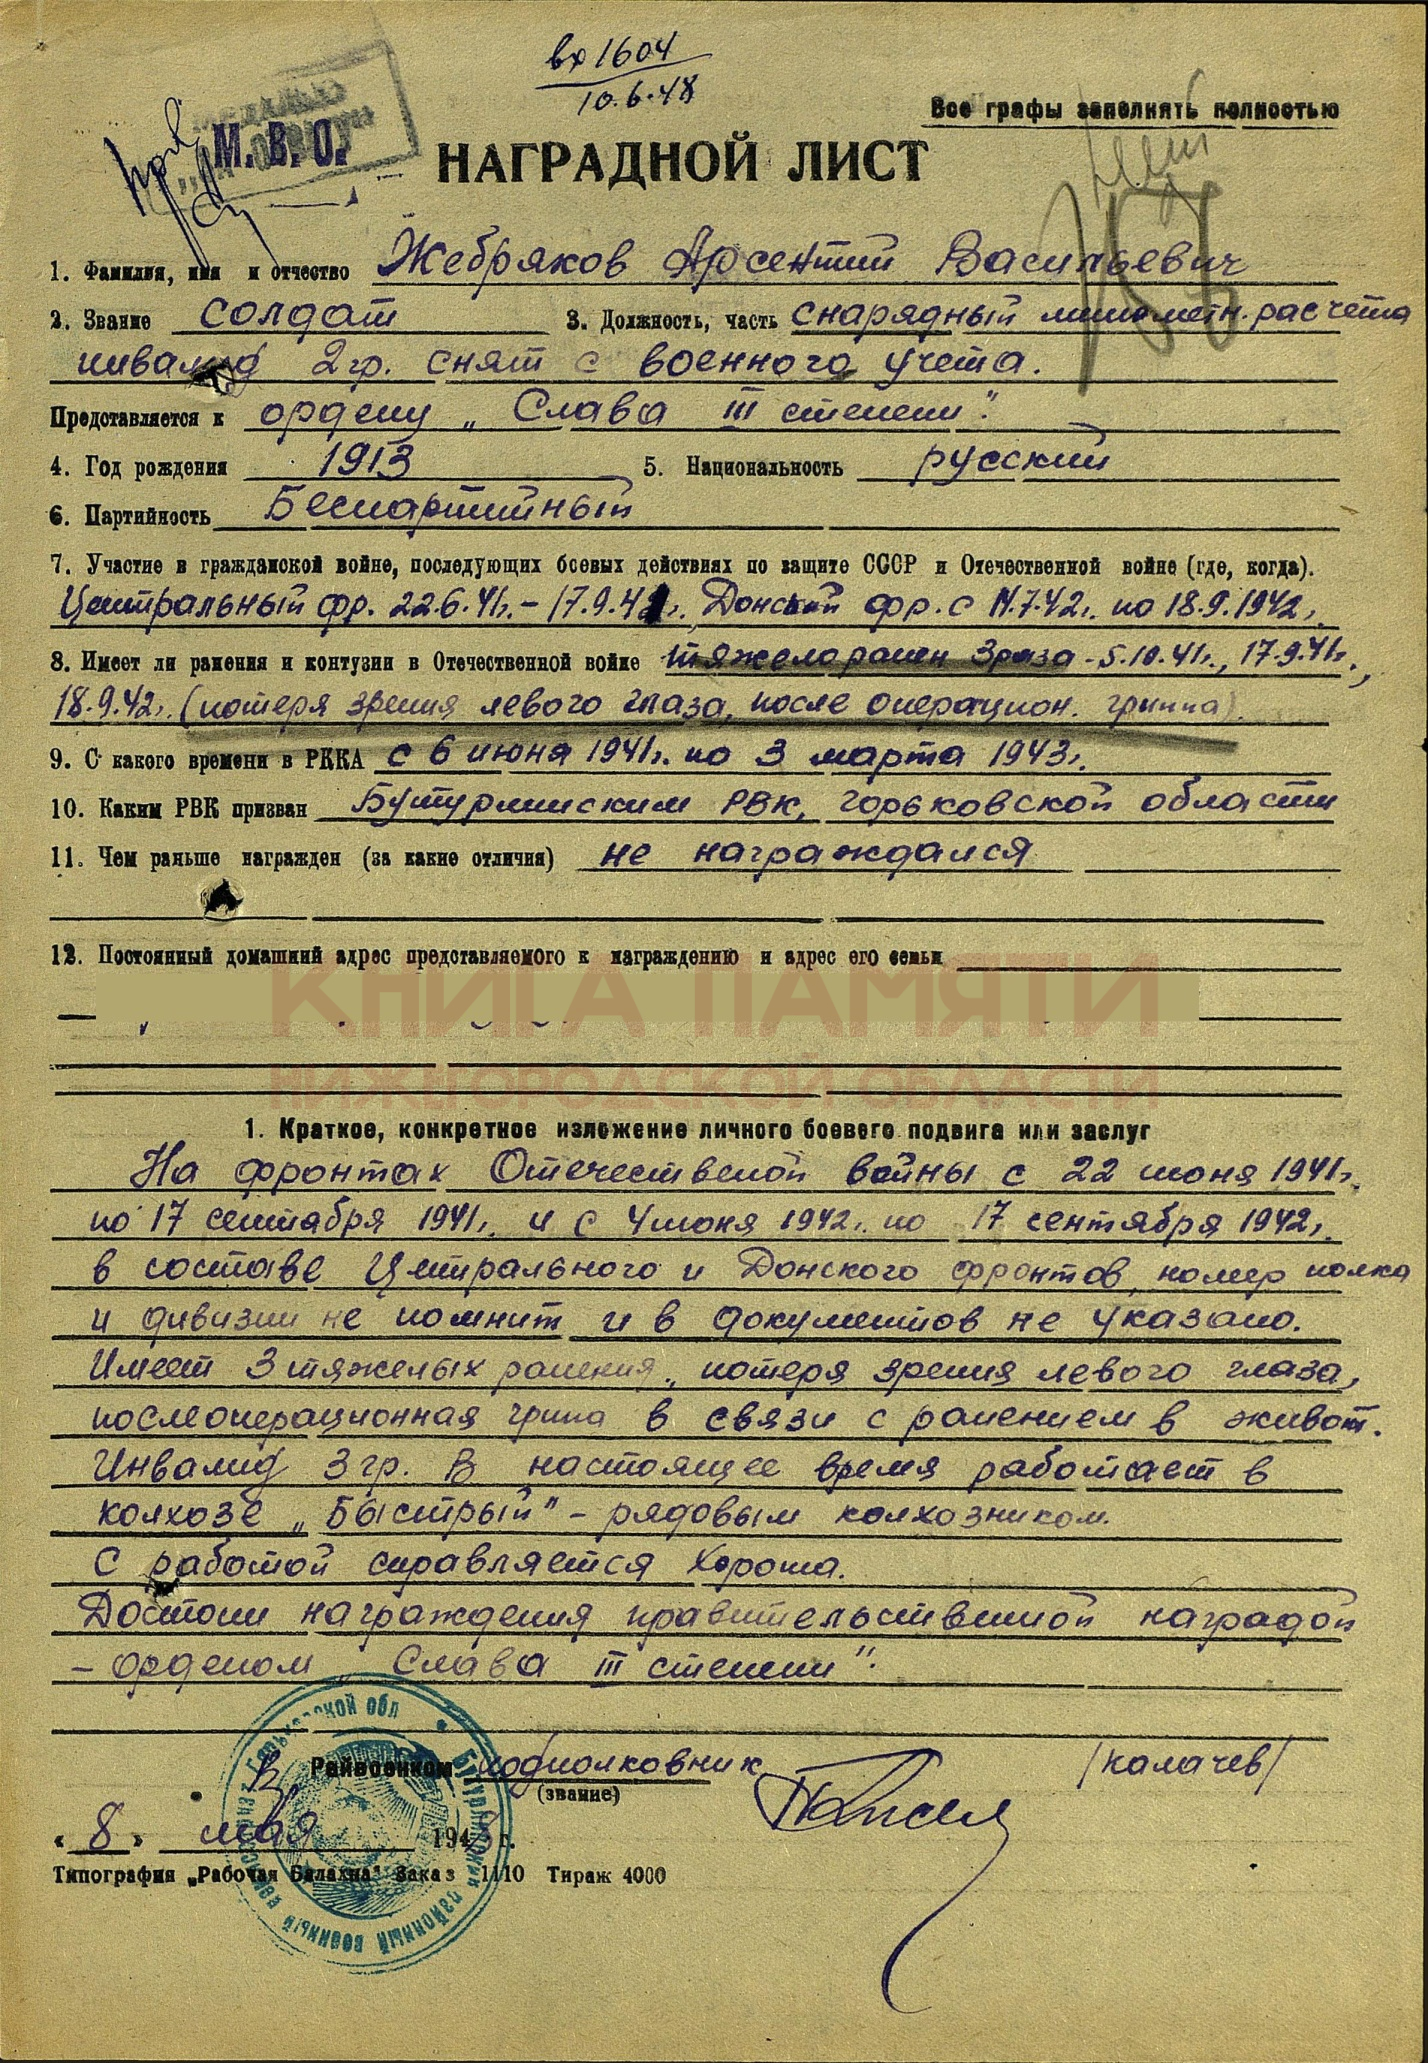 вх 1604
10.6.48
Все графы заполнять полностью
М. В. О.
НАГРАДНОЙ ЛИСТ
1. Фамилия, имя и отчество Жебряков Арсентий Васильевич
2. Звание солдат 3. Должность, часть снарядный минометн. расчета
инвалид 2 гр. снят с военного учета.
Представляется к ордену „Слава III степени".
4. Год рождения 1913 5. Национальность русский
6. Партийность Беспартийный
7. Участие в гражданской войне, последующих боевых действиях по защите СССР и Отечественной войне (где, когда).
Центральный фр. 22.6.41г. – 17.9.41г. Донской фр. с 4.7.42г. по 18.9.1942г.
8. Имеет ли ранения и контузии в Отечественной войне тяжело ранен 3 раза - 5.10.41г., 17.9.41г.,
18.9.42г. (потеря зрения левого глаза, после операцион. грыжа).
9. С какого времени в РККА с 6 июня 1941г. по 3 марта 1943г.
10. Каким РВК призван Бутурлинским РВК, Горьковской области
11. Чем раньше награжден (за какие отличия) не награждался
12. Постоянный домашний адрес представляемого к награждению и адрес его семьи
КНИГА ПАМЯТИ
НИЖЕГОРОДСКОЙ ОБЛАСТИ
1. Краткое, конкретное изложение личного боевого подвига или заслуг
На фронтах Отечественой войны с 22 июня 1941г.
по 17 сентября 1941г. и с 4 июня 1942г. по 17 сентября 1942г.
в составе Центрального и Донского фронтов, номер полка
и дивизии не помнит и в документов не указано.
Имеет 3 тяжелых ранения, потеря зрения левого глаза,
послеоперационная грыжа в связи с ранением в живот.
Инвалид 3 гр. В настоящее время работает в
колхозе „Быстрый" – рядовым колхозником.
С работой справляется хорошо.
Достоин награждения правительственной наградой
– орденом „Слава III степени".
Райвоенком подполковник /Калачев/
(звание)
« 8 » мая 1948 г.
Типография „Рабочая Балахна" Заказ 1110 Тираж 4000
Горьковской обл • Бутурлинский районный военный комиссариат